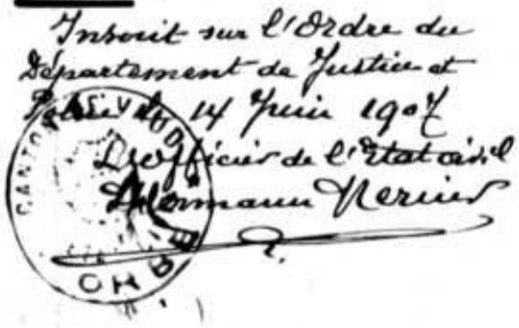 Inscrit sur l'Ordre du
Département de Justice et
Police du 14 Juin 1907
L'officier de l'Etat civil
Hermann Nerier
CANTON DE VAUD